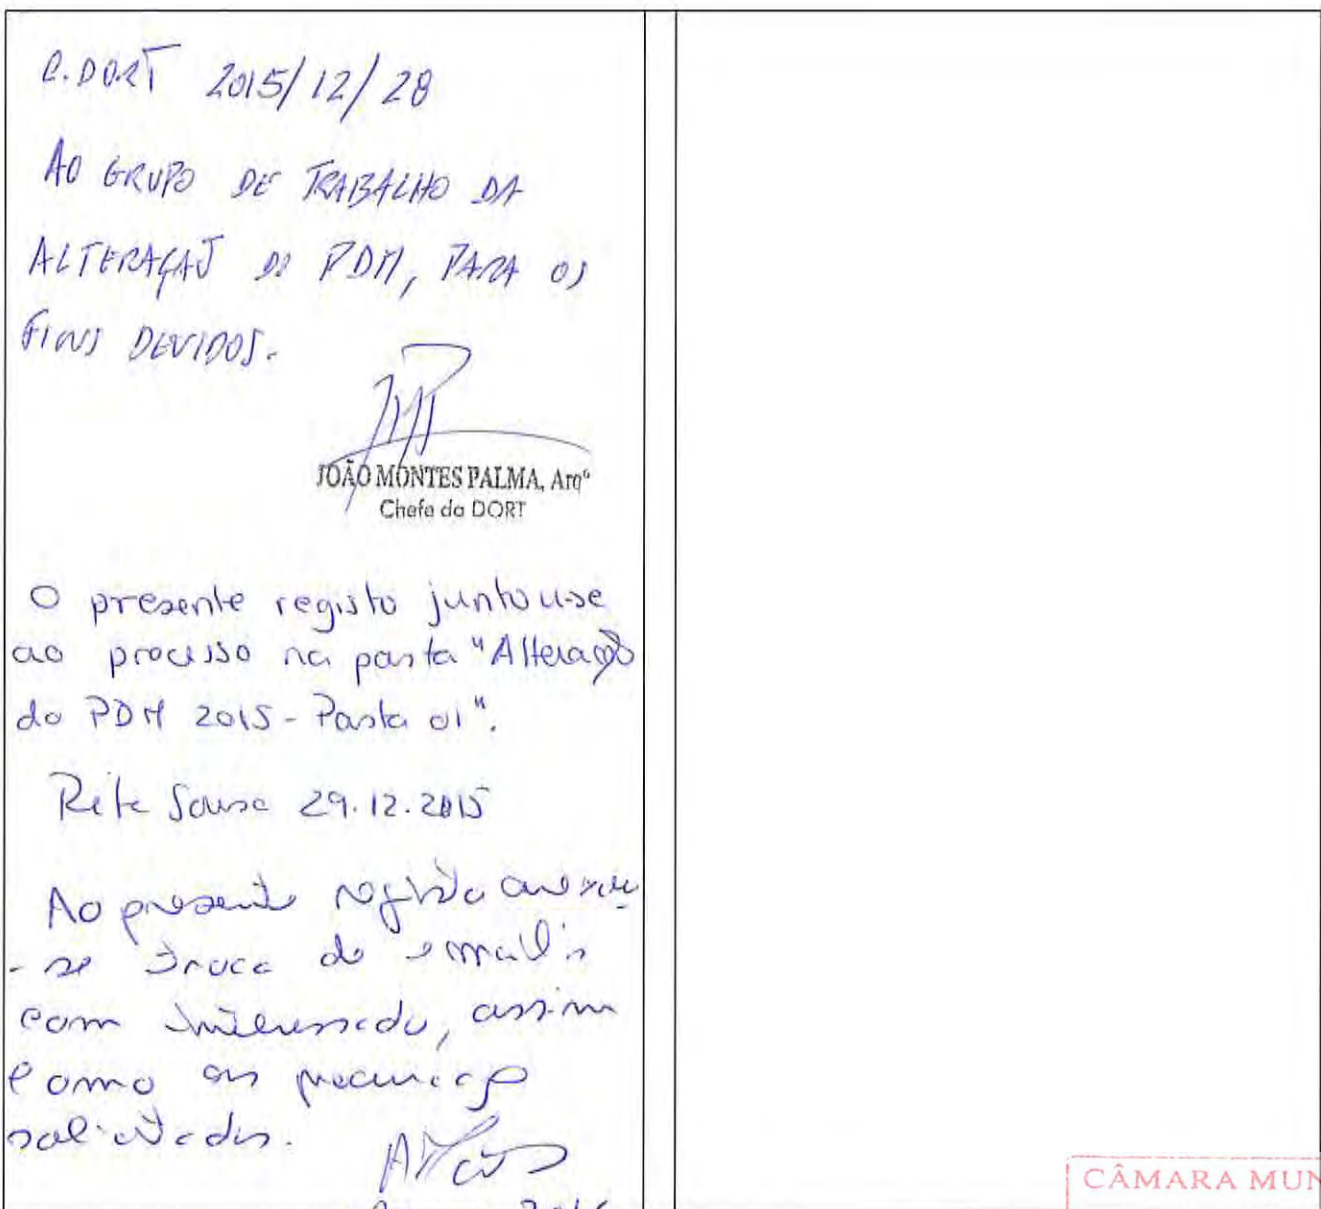 C.DORT 2015/12/28
AO GRUPO DE TRABALHO DA
ALTERAÇÃO DO PDM, PARA OS
FINS DEVIDOS.
JOÃO MONTES PALMA, Arqº
Chefe da DORT
O presente registo juntou-se
ao processo na pasta "Alteração
do PDM 2015 - Pasta 01".
Rita Sousa 29.12.2015
Ao presente registo anexou
-se troca de email's
com interessado, assim
como as
solicitadas.
2016
CÂMARA MUN